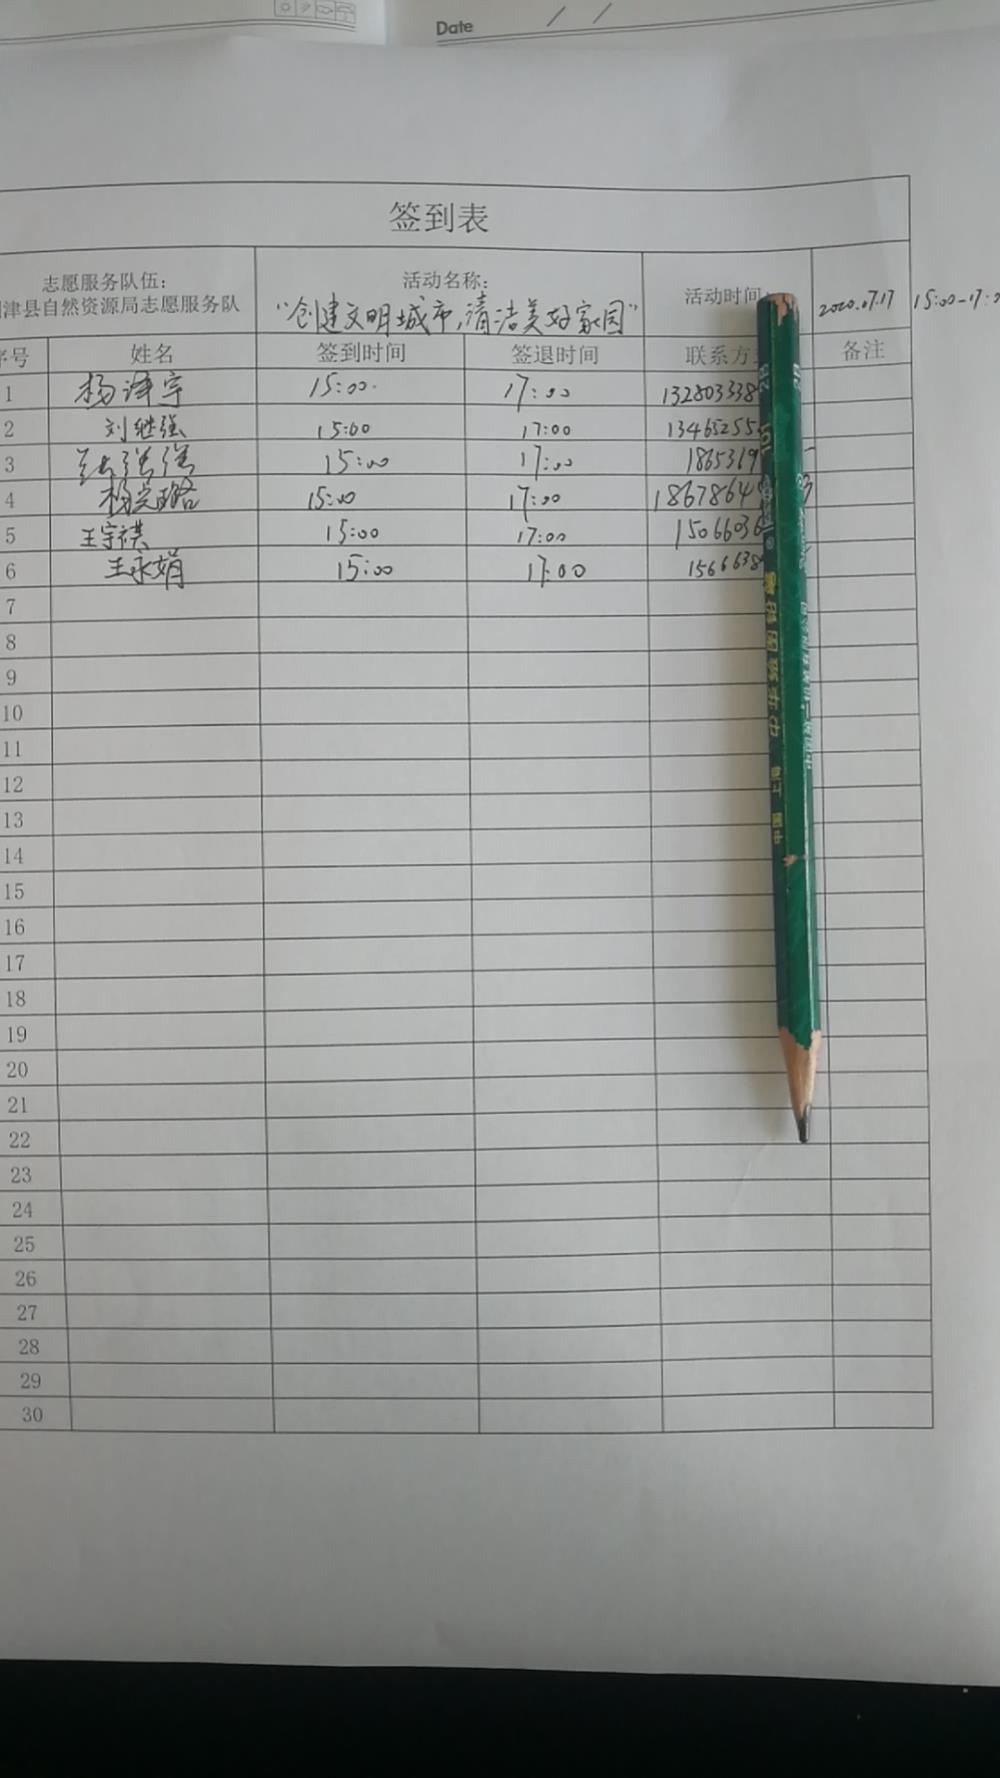 Date / /
签到表
志愿服务队伍: 活动名称: 活动时间:
津县自然资源局志愿服务队 "创建文明城市,清洁美好家园" 2020.07.17 15:00-17:
序号 姓名 签到时间 签退时间 联系方 备注
1 杨泽宇 15:00 17:00 132803338
2 刘继强 15:00 17:00 13465255
3 15:00 17:00 1865319
4 15:00 17:00 1867864
5 王宇祺 15:00 17:00 1506603
6 王永娟 15:00 17:00 1566638
7
8
9
10
11
12
13
14
15
16
17
18
19
20
21
22
23
24
25
26
27
28
29
30
2B 101
中国 制造